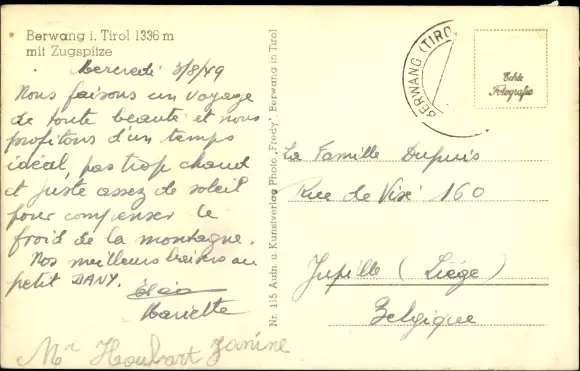 Berwang i. Tirol 1336 m
mit Zugspitze
Mercredi 3/8/49
Nous faisons un voyage
de toute beauté et nous
profitons d'un temps
idéal, pas trop chaud
et juste assez de soleil
pour compenser le
froid de la montagne.
Nos meilleurs baisers au
petit DANY.
Mariette
Mr Houbart Janine
Nr. 115 Aufn. u. Kunstverlag Photo „Fredy", Berwang in Tirol
BERWANG (TIRO
Echte
Fotografie
La Famille Dupuis
Rue de Visé 160
Jupille (Liége)
Belgique